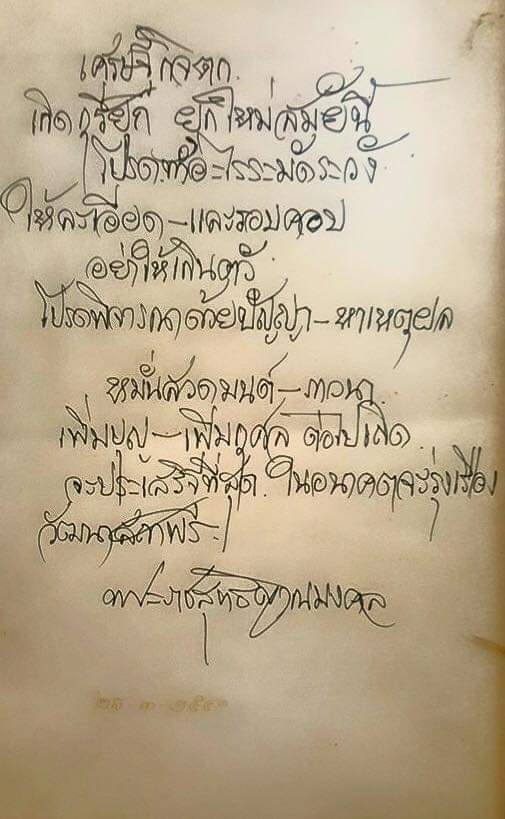 เศรษฐกิจตก
เกิดกุรียุก ยุกใหม่สมัยนี้
โปรดทำอะไรระมัดระวัง
ให้ละเอียด-และรอบคอบ
อย่าให้เกินตัว
โปรดพิจารณาด้วยปัญญา-หาเหตุผล
หมั่นสวดมนต์-ภาวนา
เพิ่มบุญ-เพิ่มกุศล ต่อไปเถิด
จะประเสริฐที่สุด ในอนาคตจะรุ่งเรือง
วัฒนาสถาพร ฯ
พระราชสุทธิญาณมงคล